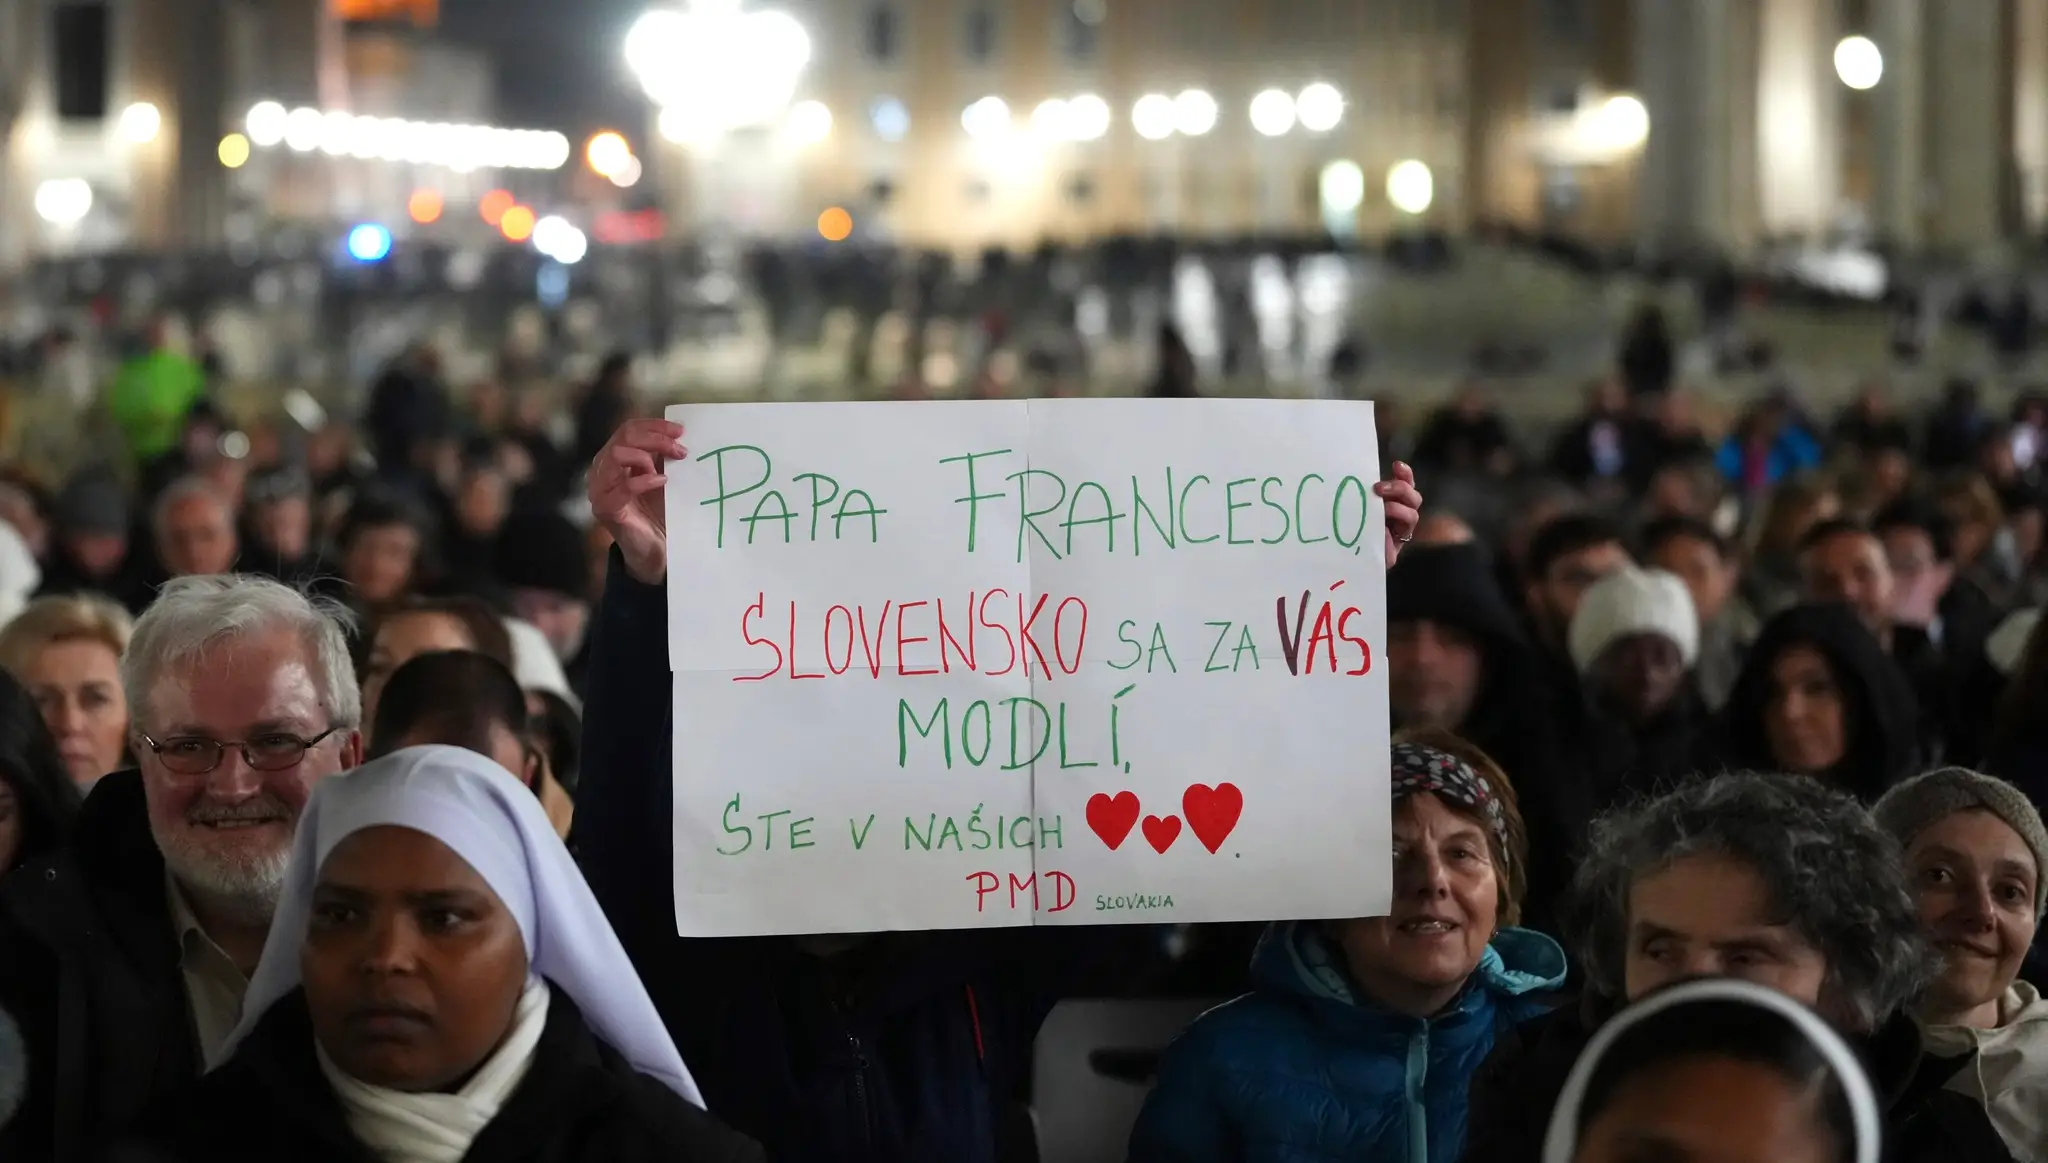 PAPA FRANCESCO,
SLOVENSKO SA ZA VÁS
MODLÍ,
STE V NAŠICH ♥♥♥.
PMD SLOVAKIA